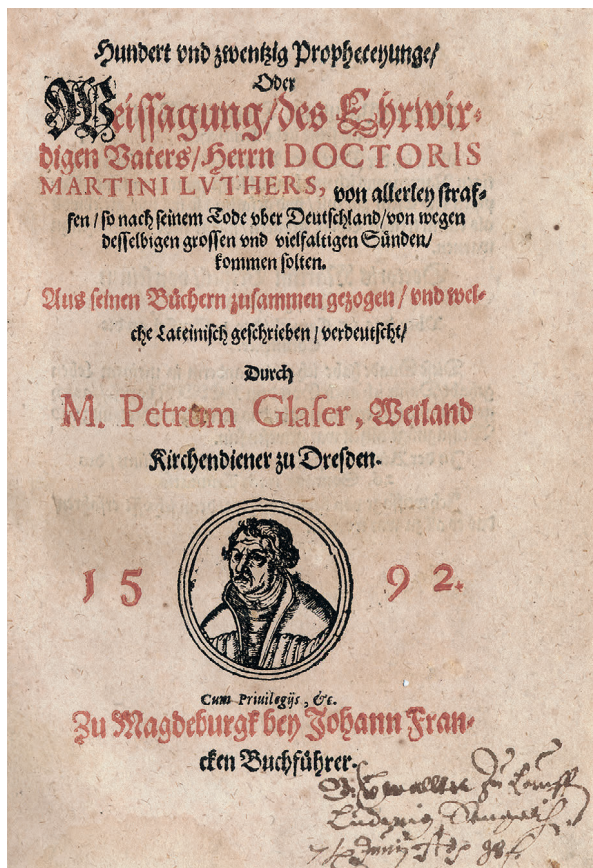 Hundert vnd zwentzig Propheceyunge/
Oder
Weissagung/des Ehrwir-
digen Vaters/Herrn DOCTORIS
MARTINI LVTHERS, von allerley straf-
fen/so nach seinem Tode vber Deutschland/von wegen
desselbigen grossen vnd vielfaltigen Sünden/
kommen solten.
Aus seinen Büchern zusammen gezogen/vnd wel-
che Lateinisch geschrieben/verdeutscht/
Durch
M. Petrum Glaser, Weiland
Kirchendiener zu Dresden.
1592.
Cum Priuilegijs, &c.
Zu Magdeburgk bey Johann Fran-
cken Buchführer.
Ludwig